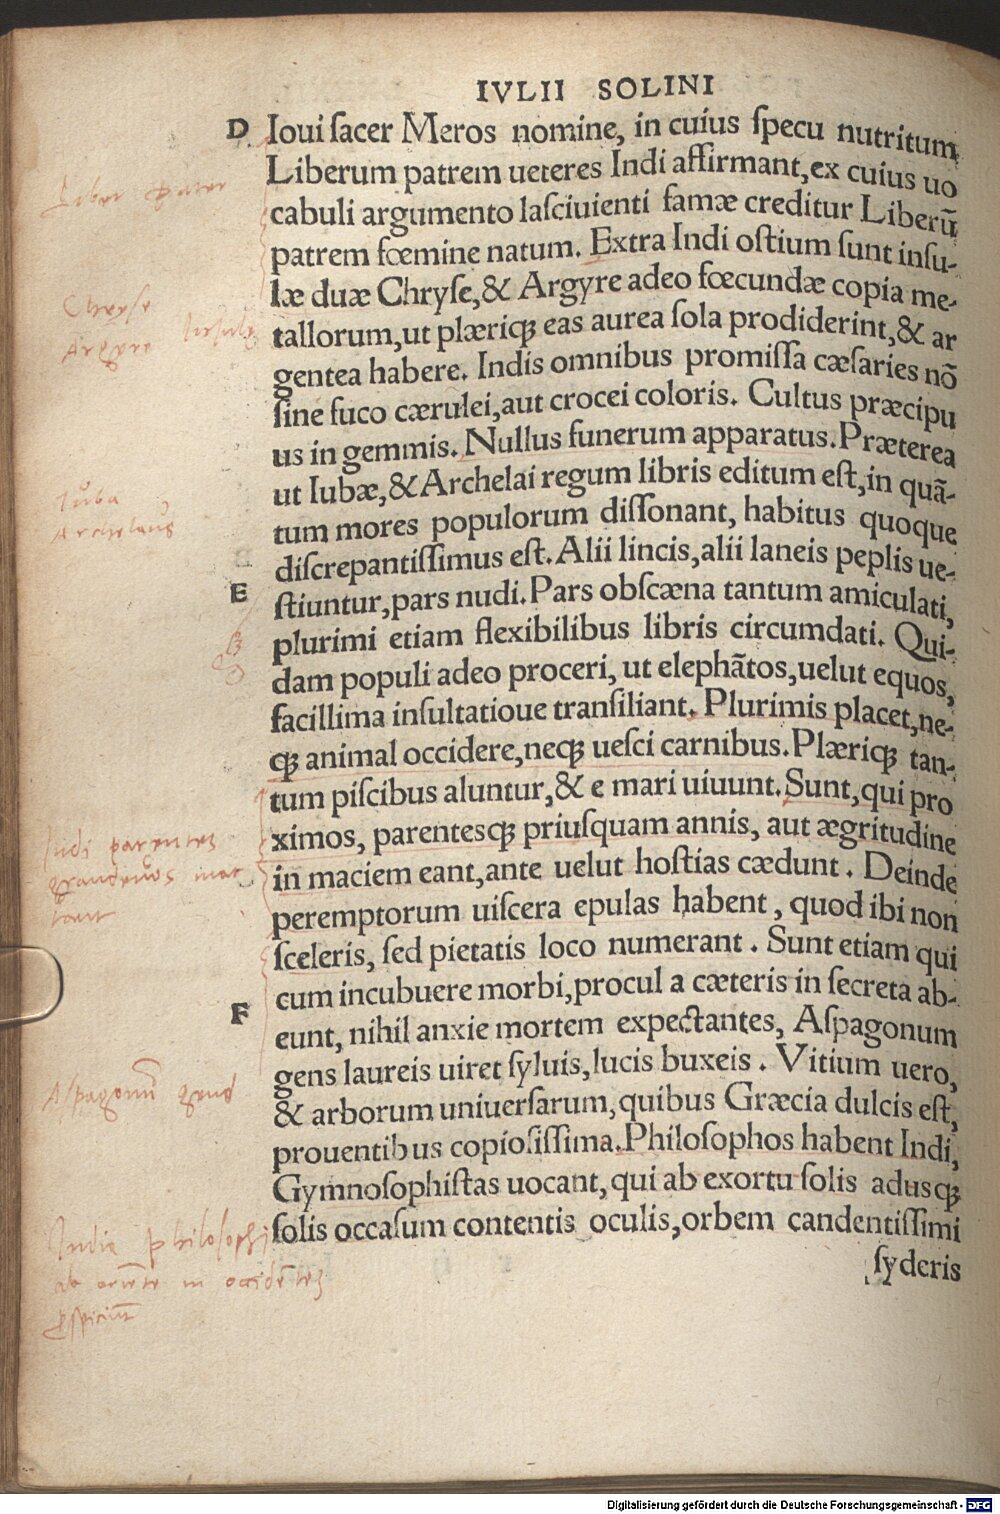 IVLII SOLINI
D Ioui ſacer Meros nomine, in cuius ſpecu nutritum
Liber pater
Liberum patrem ueteres Indi affirmant, ex cuius uo
cabuli argumento laſciuienti famæ creditur Liberū
patrem fœmine natum. Extra Indi oſtium ſunt inſu-
Chryse
læ duæ Chryſe, & Argyre adeo fœcundæ copia me-
Argyre Insulę
tallorum, ut plæriqꝫ eas aurea ſola prodiderint, & ar
gentea habere. Indis omnibus promiſſa cæſaries nō
ſine fuco cærulei, aut crocei coloris. Cultus præcipu
us in gemmis. Nullus funerum apparatus. Præterea
Iuba
ut Iubæ, & Archelai regum libris editum eſt, in quā-
Archelaus
tum mores populorum diſſonant, habitus quoque
diſcrepantiſſimus eſt. Alii lincis, alii laneis peplis ue-
E ſtiuntur, pars nudi. Pars obſcæna tantum amiculati,
plurimi etiam flexibilibus libris circumdati. Qui-
dam populi adeo proceri, ut elephātos, uelut equos,
facillima inſultatioue tranſiliant. Plurimis placet, ne-
qꝫ animal occidere, neqꝫ ueſci carnibus. Plæriqꝫ tan-
tum piſcibus aluntur, & e mari uiuunt. Sunt, qui pro
Indi parentes
ximos, parentesqꝫ priuſquam annis, aut ægritudine
grandeuos mac
in maciem eant, ante uelut hoſtias cædunt. Deinde
tant
peremptorum uiſcera epulas habent, quod ibi non
ſceleris, ſed pietatis loco numerant. Sunt etiam qui
cum incubuere morbi, procul a cæteris in ſecreta ab-
F eunt, nihil anxie mortem expectantes, Aſpagonum
gens laureis uiret ſyluis, lucis buxeis. Vitium uero,
Aspagonū gens
& arborum uniuerſarum, quibus Græcia dulcis eſt,
prouentibus copioſiſſima. Philoſophos habent Indi,
Gymnoſophiſtas uocant, qui ab exortu ſolis adusqꝫ
Indię philosophi
ſolis occaſum contentis oculis, orbem candentiſſimi
ab oriēte in occidētes
ſyderis
Digitalisierung gefördert durch die Deutsche Forschungsgemeinschaft - DFG